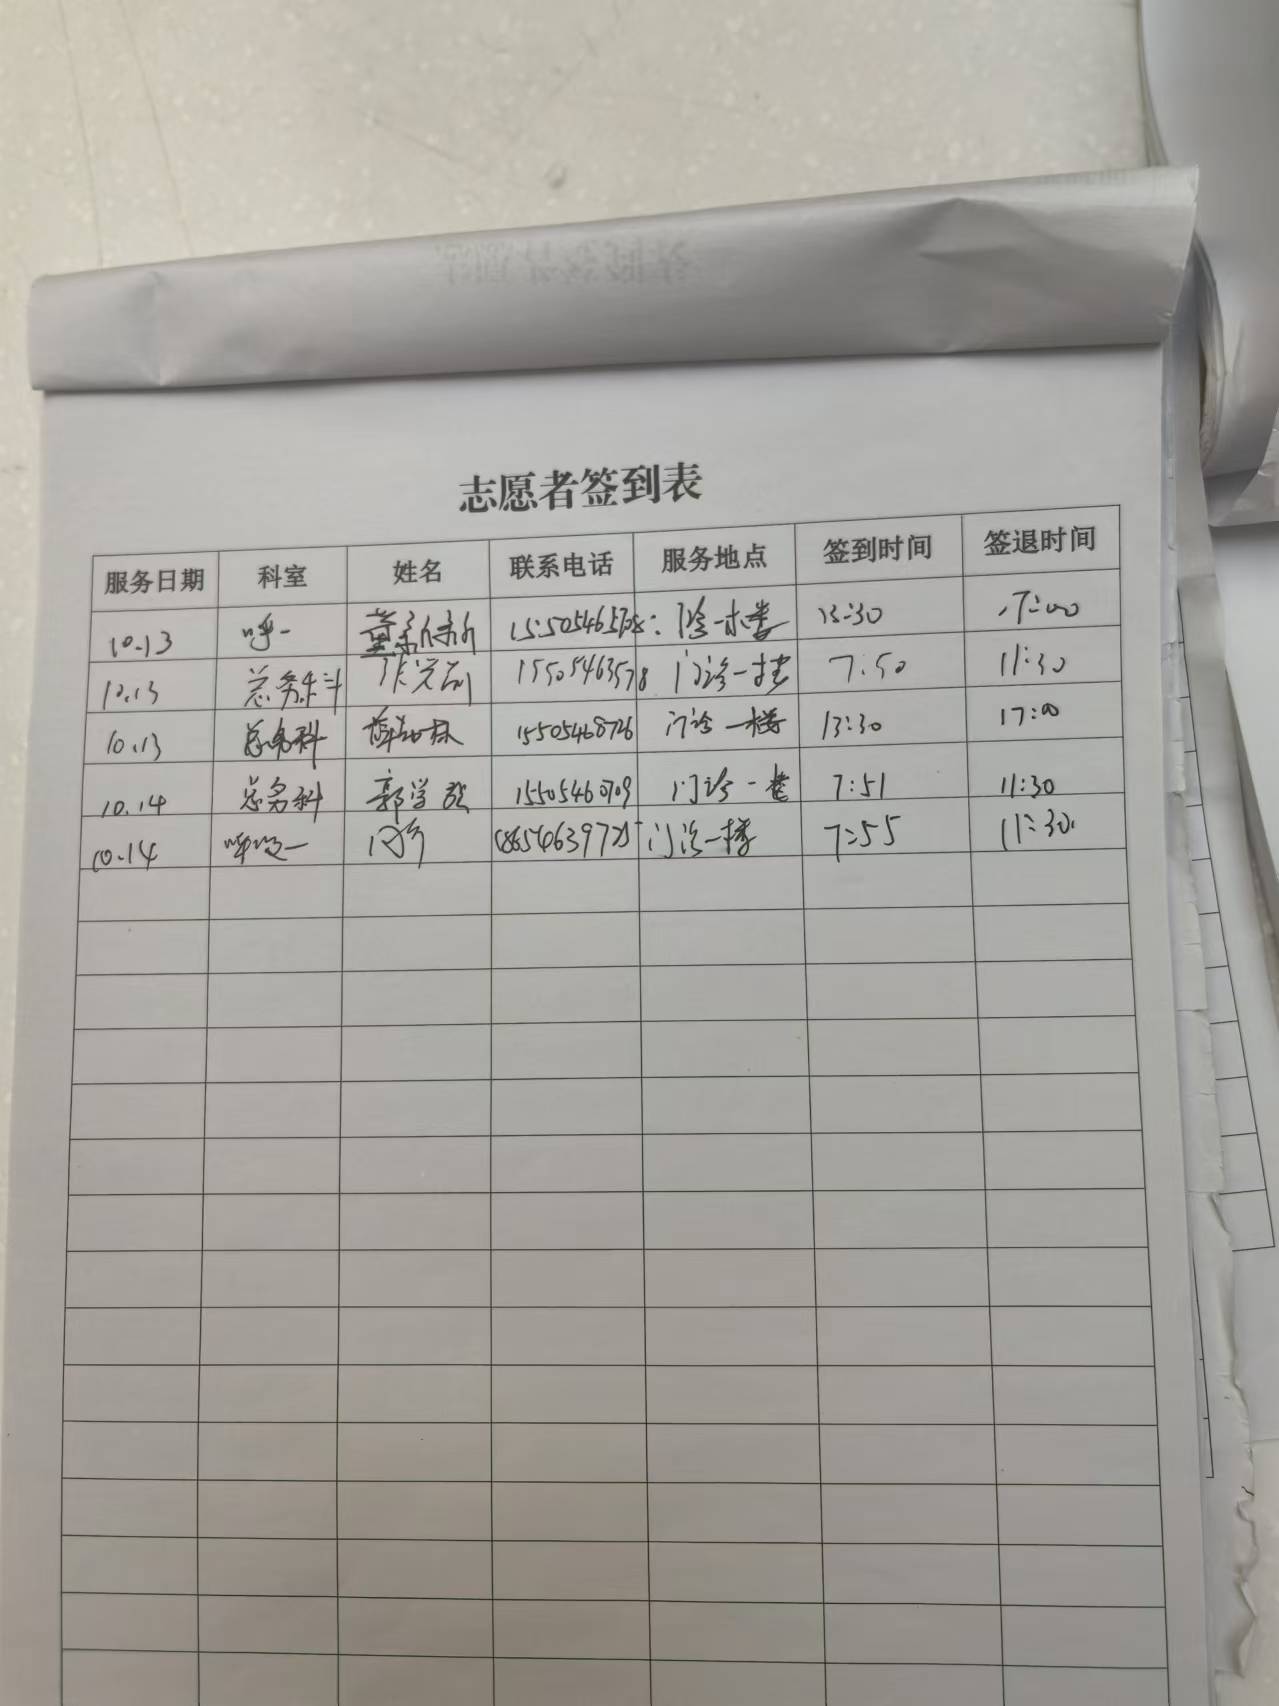 志愿者签到表
服务日期 科室 姓名 联系电话 服务地点 签到时间 签退时间
10.13 呼一 门诊一楼 13:30 17:00
10.13 总务科 15505463578 门诊一楼 7:50 11:30
10.13 总务科 15505468726 门诊一楼 13:30 17:00
10.14 总务科 15505460709 门诊一楼 7:51 11:30
10.14 呼吸一 门诊一楼 7:55 11:30